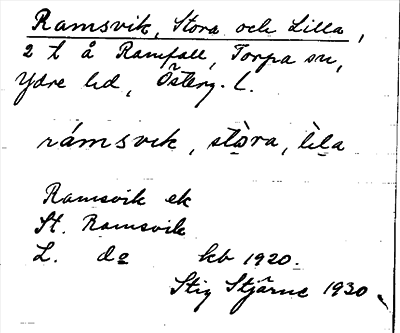 Ramsvik, Stora och Lilla,
2 t å Ramfall, Torpa sn,
Ydre hd, Österg. L.
rámsvik, stòra, lìla
Ramsvik ek
St. Ramsvik
L. do kb 1920.
Stig Stjärne 1930